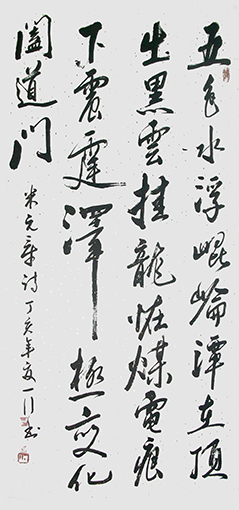 五色水浮崐崘潭在頂
出黑雲挂龍怪煤電痕
下震霆澤極變化
闔道門
米元章詩丁亥年夏一行書